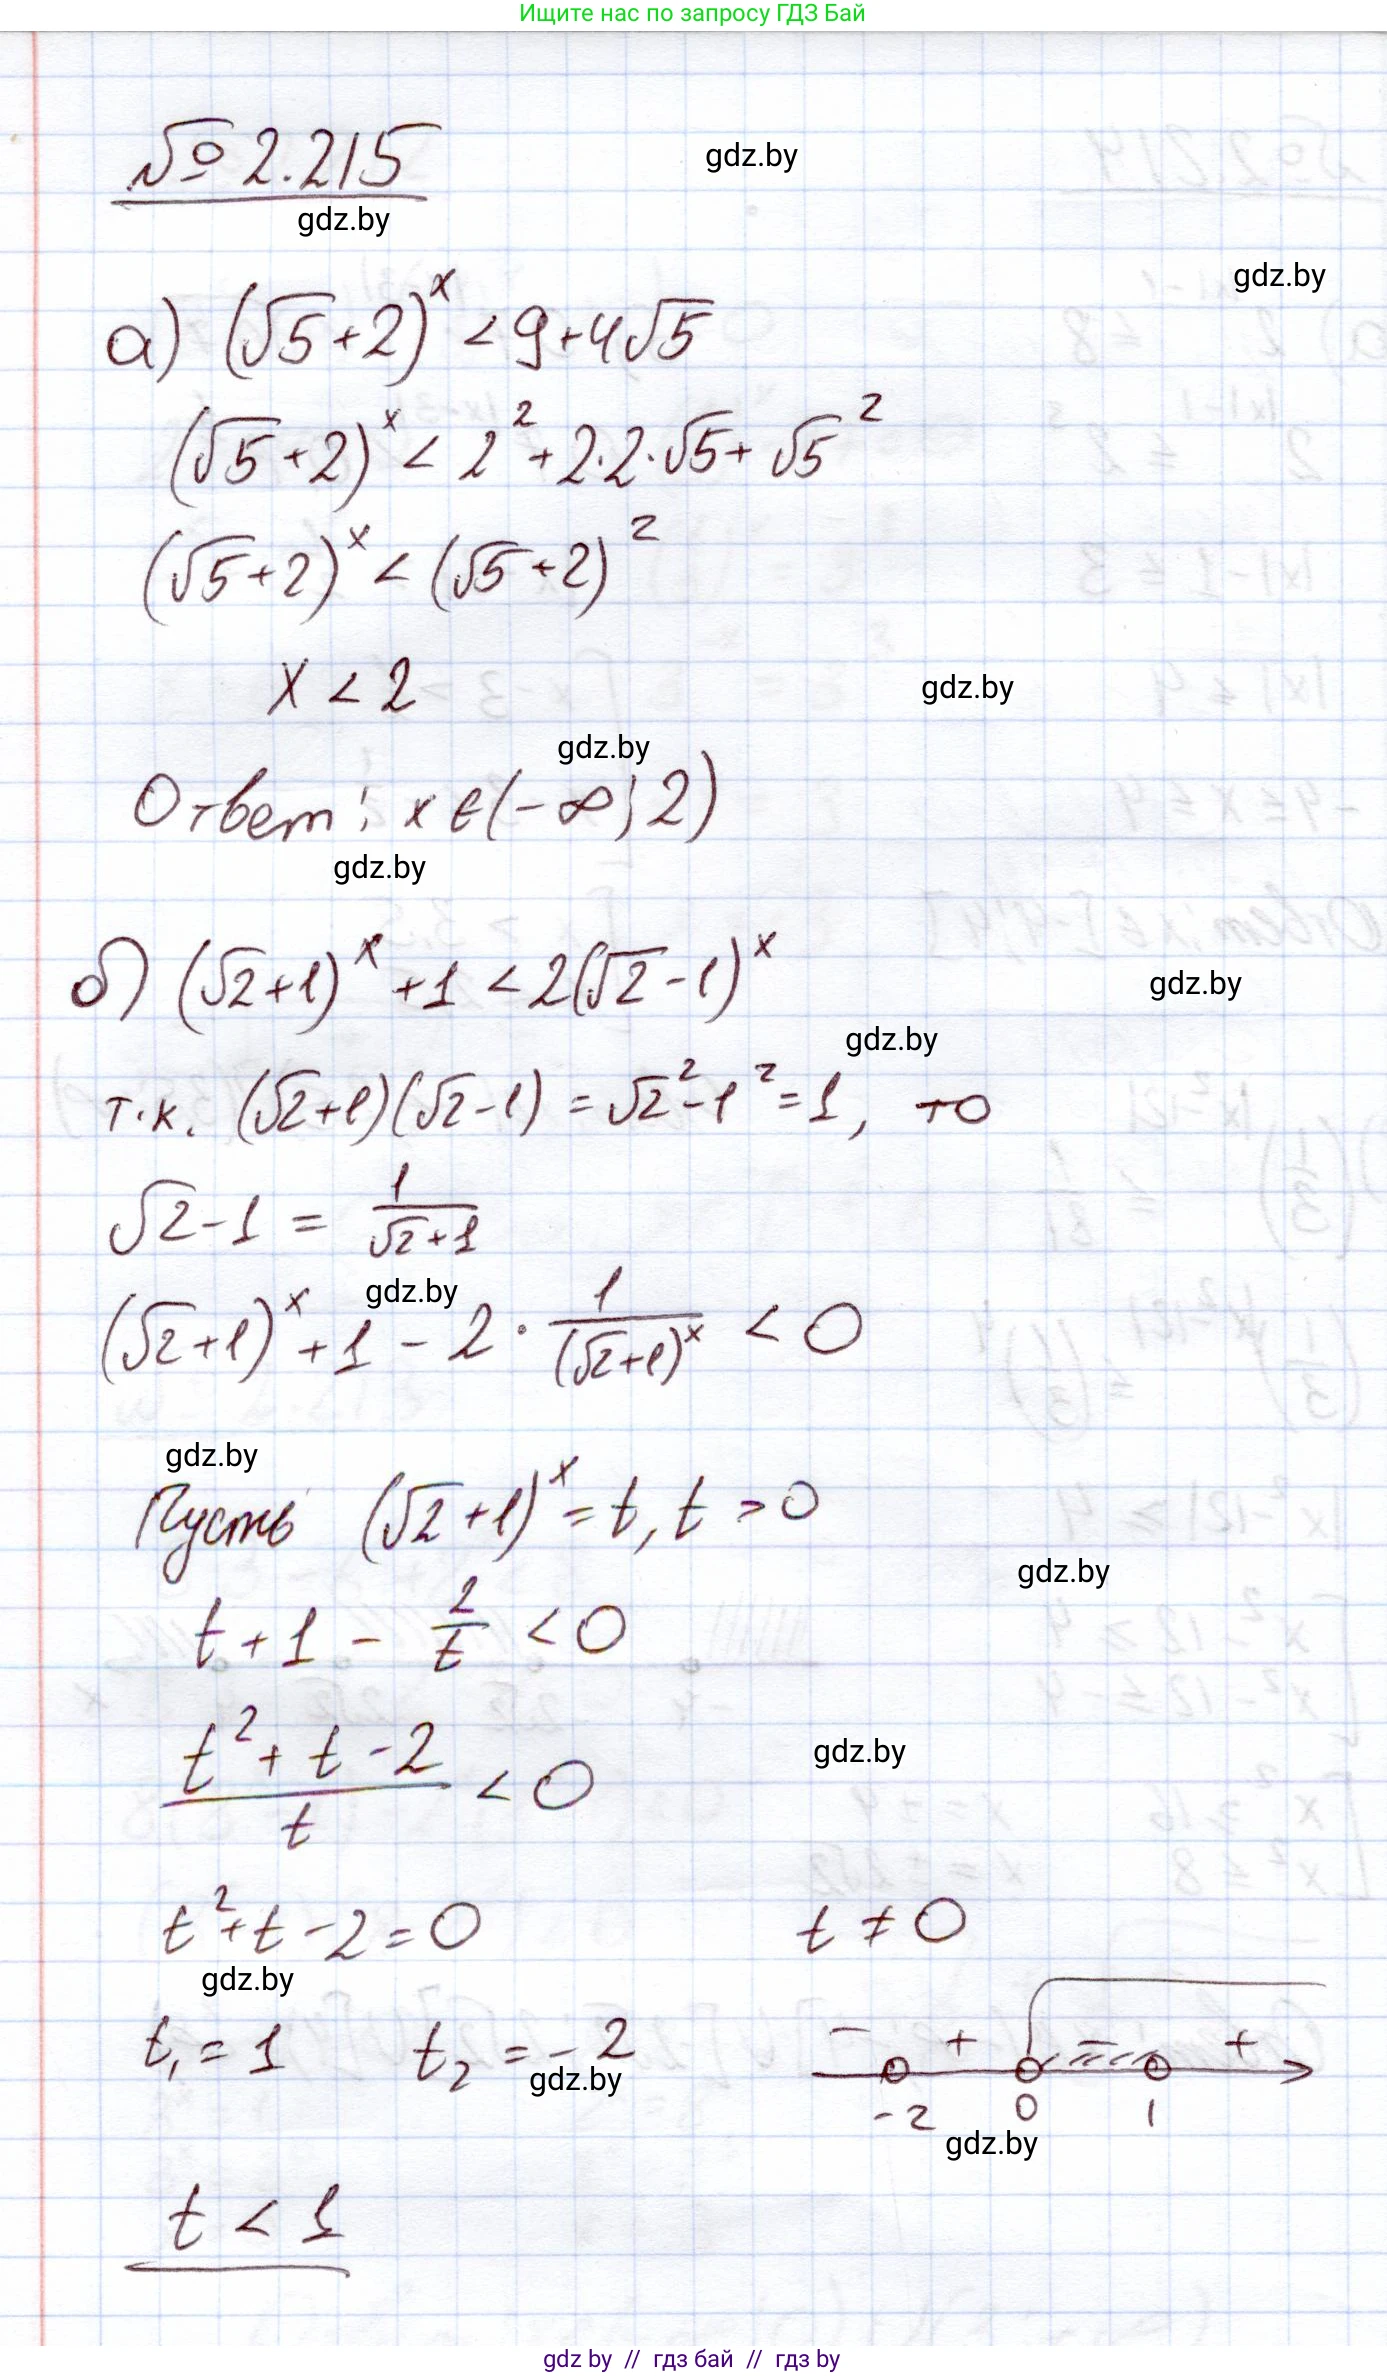 Ищите нас по запросу ГДЗ Бай
№ 2.215
gdz.by
gdz.by
gdz.by
а) (√5+2)^x < 9+4√5
(√5+2)^x < 2^2+2·2·√5+√5^2
(√5+2)^x < (√5+2)^2
x < 2
gdz.by
gdz.by
Ответ: x∈(-∞; 2)
gdz.by
б) (√2+1)^x +1 < 2(√2-1)^x
gdz.by
gdz.by
т.к. (√2+1)(√2-1) = √2^2-1^2 = 1, то
√2-1 = 1/(√2+1)
gdz.by
(√2+1)^x + 1 - 2 · 1/(√2+1)^x < 0
gdz.by
Пусть (√2+1)^x = t, t > 0
gdz.by
t + 1 - 2/t < 0
gdz.by
(t^2 + t - 2)/t < 0
t^2 + t - 2 = 0 t ≠ 0
gdz.by
t₁ = 1 t₂ = -2
gdz.by
- + - +
-2 0 1
gdz.by
t < 1
gdz by // гдз бай // гдз by